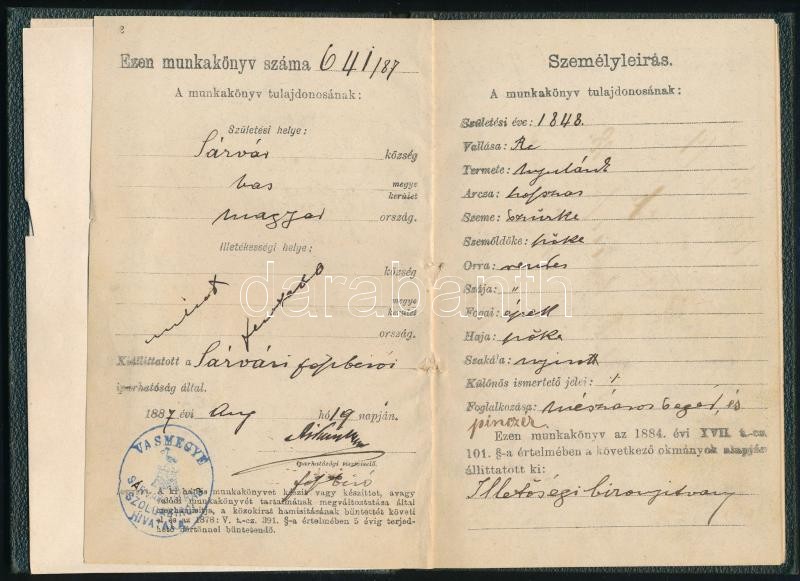 2
Ezen munkakönyv száma 641/87
A munkakönyv tulajdonosának:
Születési helye:
Sárvár község
vas megye
kerület
magyar ország.
Illetékességi helye:
község
mint fentebb
megye
kerület
ország.
Kiállíttatott a Sárvári főszbírói
iparhatóság által.
1887 évi Aug hó 19 napján.
iparhatósági
főbíró
A ki hamis munkakönyvet készít vagy készíttet, avagy
valódi munkakönyvet tartalmának megváltoztatása által
meghamisítja, a közokirat hamisításának büntettét követi
el és az 1878: V. t.-cz. 391. §-a értelmében 5 évig terjed-
hető börtönnel büntetendő.
VASMEGYE
HIVATALA
Személyleirás.
A munkakönyv tulajdonosának:
Születési éve: 1848.
Vallása: Rc
Termete: nyulánk
Arcza: hosszas
Szeme: Szürke
Szemöldöke: szőke
Orra: rendes
Szája: "
Fogai: épek
Haja: szőke
Szakála: nyirott
Különös ismertető jelei:
Foglalkozása: mészáros segéd, és
pinczér
Ezen munkakönyv az 1884. évi XVII. t.-cz.
101. §-a értelmében a következő okmányok alapján
állíttatott ki:
Illetőségi bizonyitvány
darabanth